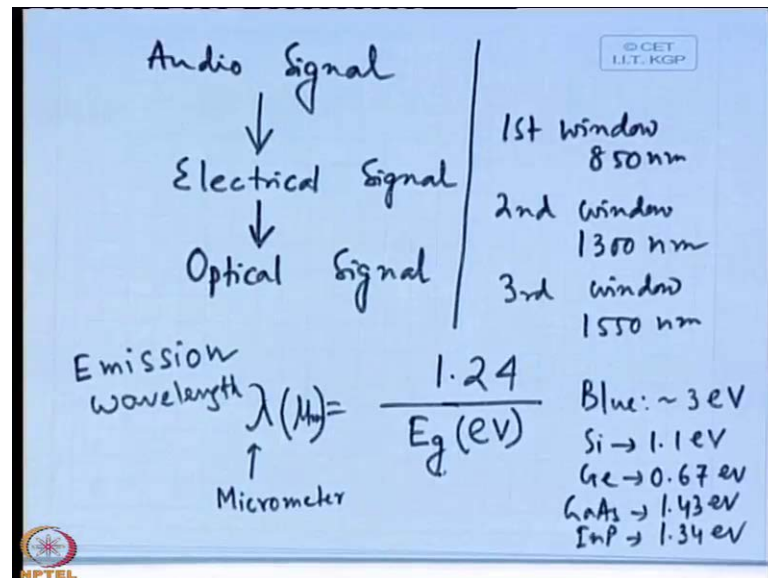 Audio Signal
Electrical Signal
Optical Signal
© CET
I.I.T. KGP
1st window
850 nm
2nd window
1300 nm
3rd window
1550 nm
Emission
wavelength λ(μm) = 1.24
Eg (eV)
Micrometer
Blue: ~ 3 eV
Si → 1.1 eV
Ge → 0.67 ev
GaAs → 1.43 eV
InP → 1.34 eV
NPTEL